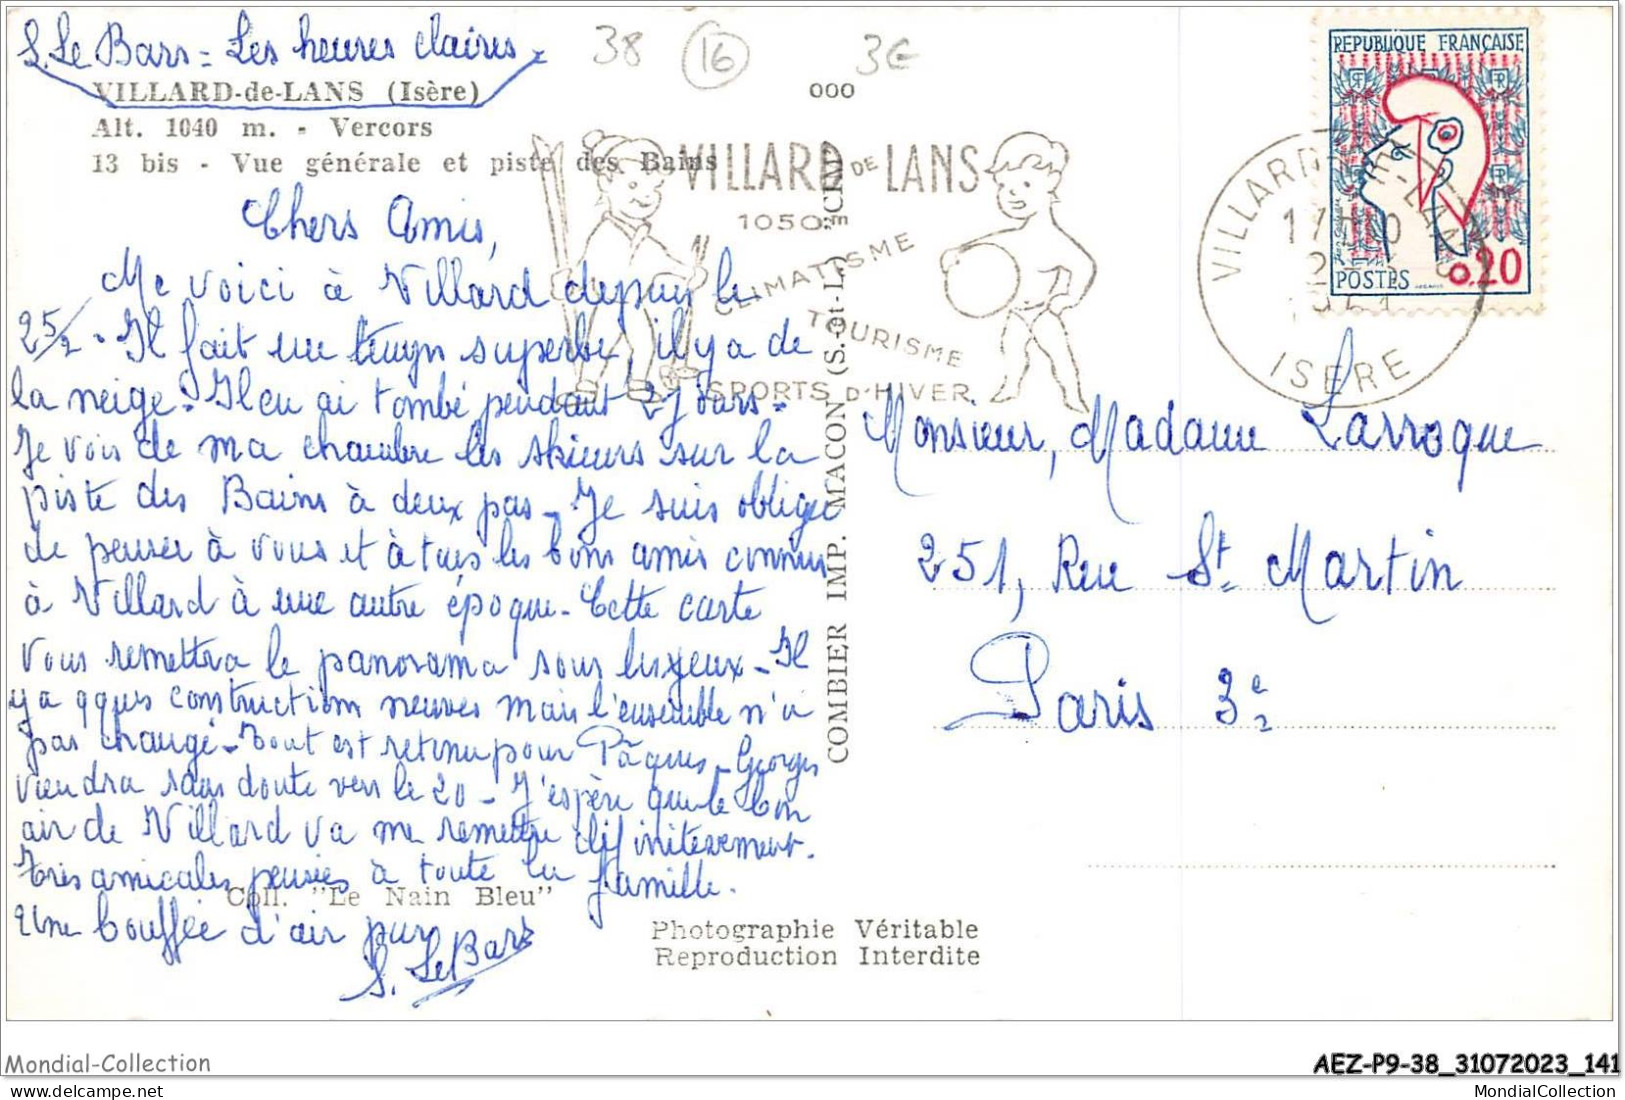 S. Le Bars = Les heures claires =
38 16 3€
VILLARD-de-LANS (Isère)
Alt. 1040 m. - Vercors
13 bis - Vue générale et piste des Bains
000
VILLARD DE LANS
1050 M
CLIMATISME
TOURISME
SPORTS D'HIVER
REPUBLIQUE FRANÇAISE
POSTES 0,20
VILLARD-DE-LANS
ISERE
Chers Amis,
Me voici à Villard depuis le
25/2. Il fait un temps superbe, il y a de
la neige. Il en ai tombé pendant 2 jours.
Je vois de ma chambre les skieurs sur la
piste des Bains à deux pas - Je suis obligée
de penser à vous et à tous les bons amis connus
à Villard à une autre époque - Cette carte
vous remettra le panorama sous les yeux - Il
y a qques constructions neuves mais l'ensemble n'a
pas changé - Tout est retenu pour Pâques - Georges
viendra sans doute vers le 20 - J'espère que le bon
air de Villard va me remettre définitivement.
Très amicales pensées à toute la famille.
Une bouffée d'air pur
S. Le Bars
Coll. "Le Nain Bleu"
COMBIER IMP. MACON (S.-et-L.)
Monsieur, Madame Larroque
251, Rue St Martin
Paris 3e
Photographie Véritable
Reproduction Interdite
Mondial-Collection
AEZ-P9-38_31072023_141
www.delcampe.net
MondialCollection